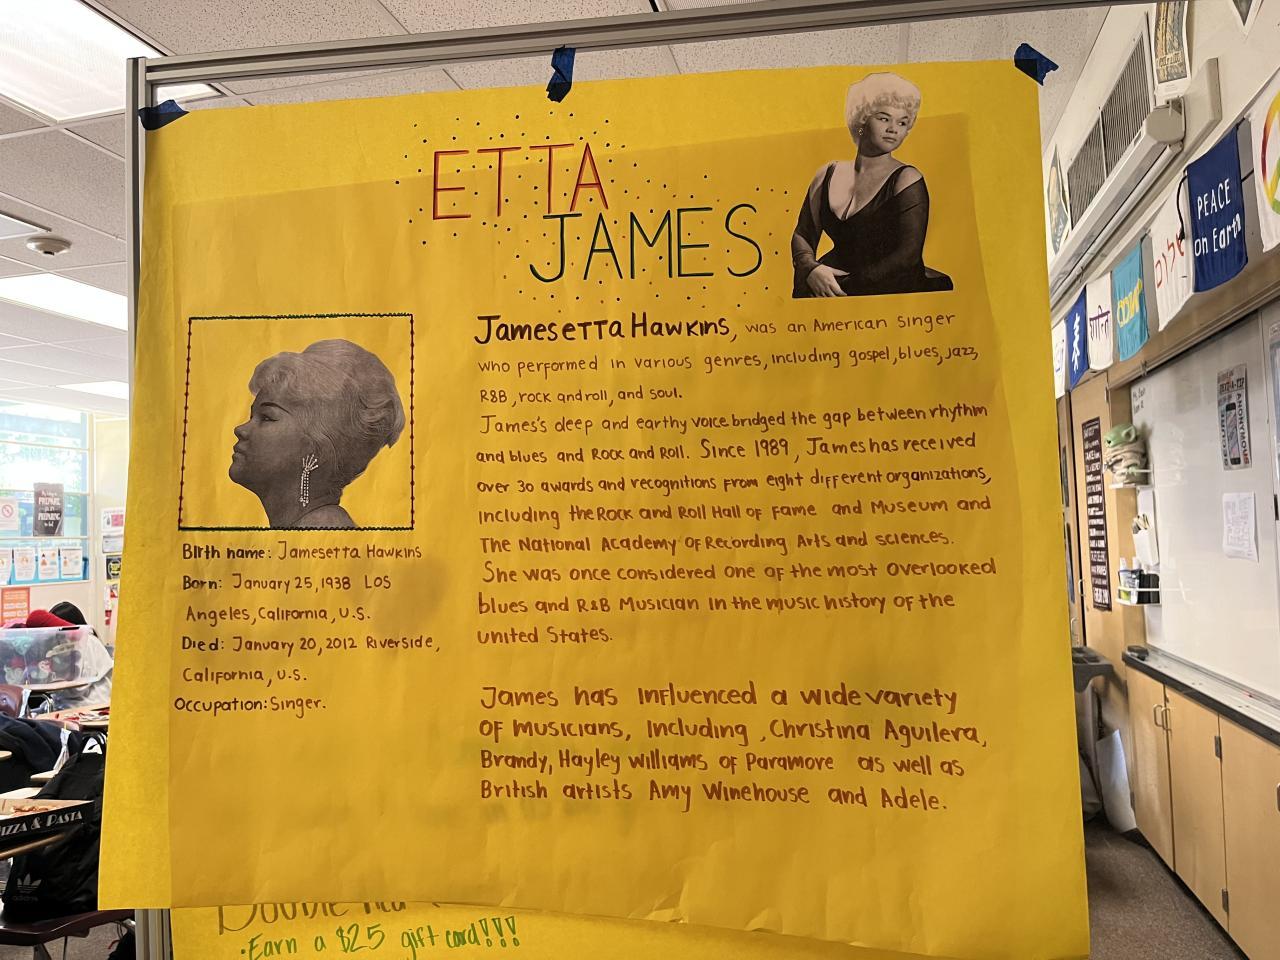 ETTA
JAMES
Jamesetta Hawkins, was an American singer
who performed in various genres, including gospel, blues, jazz,
R&B, rock and roll, and soul.
James's deep and earthy voice bridged the gap between rhythm
and blues and Rock and Roll. Since 1989, James has received
over 30 awards and recognitions from eight different organizations,
including the Rock and Roll Hall of Fame and Museum and
The National Academy of Recording Arts and sciences.
She was once considered one of the most overlooked
blues and R&B Musician in the music history of the
united States.
James has influenced a wide variety
of musicians, including , Christina Aguilera,
Brandy, Hayley williams of Paramore as well as
British artists Amy Winehouse and Adele.
Birth name: Jamesetta Hawkins
Born: January 25, 1938 Los
Angeles, California, U.S.
Died: January 20, 2012 Riverside,
California, U.S.
Occupation: Singer.
Double
•Earn a $25 gift card!!!
PEACE
on Earth
שלום
शान्ति
PIZZA & PASTA
adidas
TEXT-A-TIP
ANONYMOUS